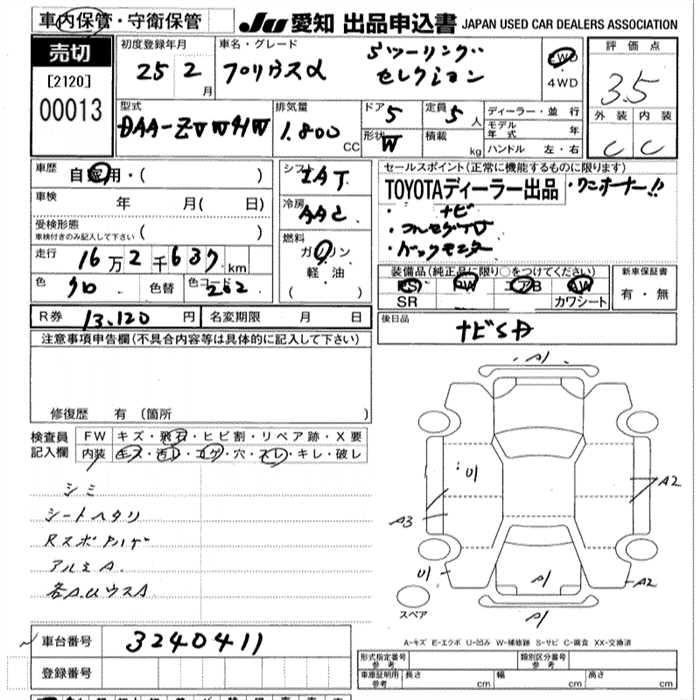 車内保管・守衛保管
JU 愛知 出品申込書 JAPAN USED CAR DEALERS ASSOCIATION
売切
[2120]
00013
初度登録年月
25 2
月
車名・グレード
Sツーリング
プリウスα セレクション
2WD
4WD
評価点
3.5
外装 内装
C C
型式
DAA-ZVW41W
排気量
1.800
CC
ドア 5
形状 W
定員 5 人
積載 kg
ディーラー・並行
モデル年式 年
ハンドル 左・右
車歴
自家用・( )
車検 年 月( 日)
受検形態
車検付きのみ記入して下さい ( )
走行 16万2千637km
色 クロ 色替 色コード 202
シフト
IAT
冷房
AAC
燃料
ガソリン
軽油
( )
セールスポイント(正常に機能するものに限ります)
TOYOTAディーラー出品 ・ワンオーナー!!
・ナビ
・フルセグTV
・バックモニター
装備品(純正品に限り○をつけてください)
PS PW エアB AW
SR カワシート
新車保証書
有・無
R券 13,120 円 名変期限 月 日
後日品
ナビSD
注意事項申告欄(不具合内容等は具体的に記入して下さい)
修復歴 有 (箇所 )
検査員記入欄
FW キズ・飛石・ヒビ割・リペア跡・X要
内装 キズ・汚レ・コゲ・穴・スレ・キレ・破レ
シミ
シートヘタリ
アルミA.
各A.UウスA
A1
U1
A2
A3
U1
A1
A2
A1
スペア
A-キズ E-エクボ U-凹み W-補修跡 S-サビ C-腐食 XX-交換済
車台番号 3240411
登録番号
形式指定番号 参考
類別区分番号 参考
車庫証明用 参考 長さ cm 幅 cm 高さ cm